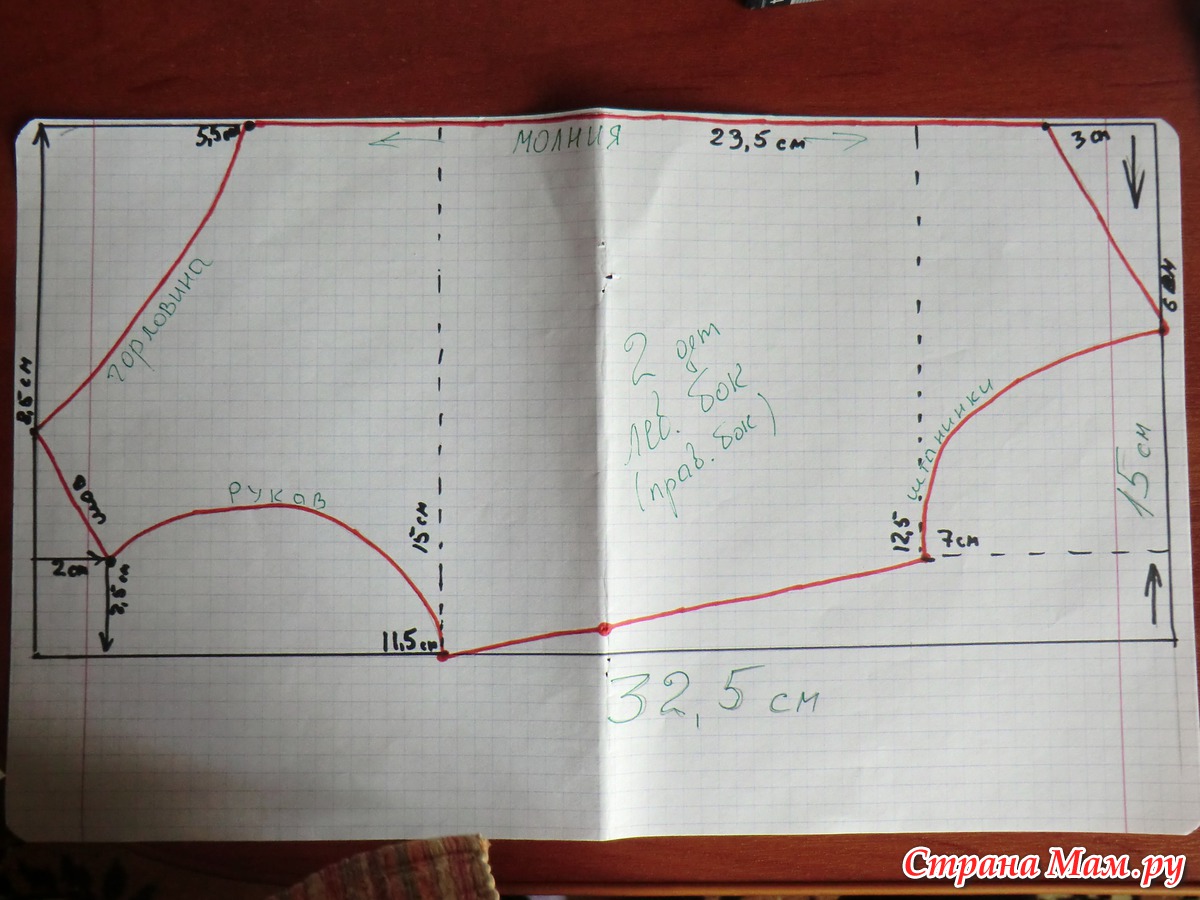 5,5 см
МОЛНИЯ
23,5 см
3 см
6 см
горловина
8,5 см
2 дет
лев. бок
(прав. бок)
штанинки
15 см
рукав
15 см
12,5
7 см
2 см
11,5 см
32,5 см
Страна Мам.ру